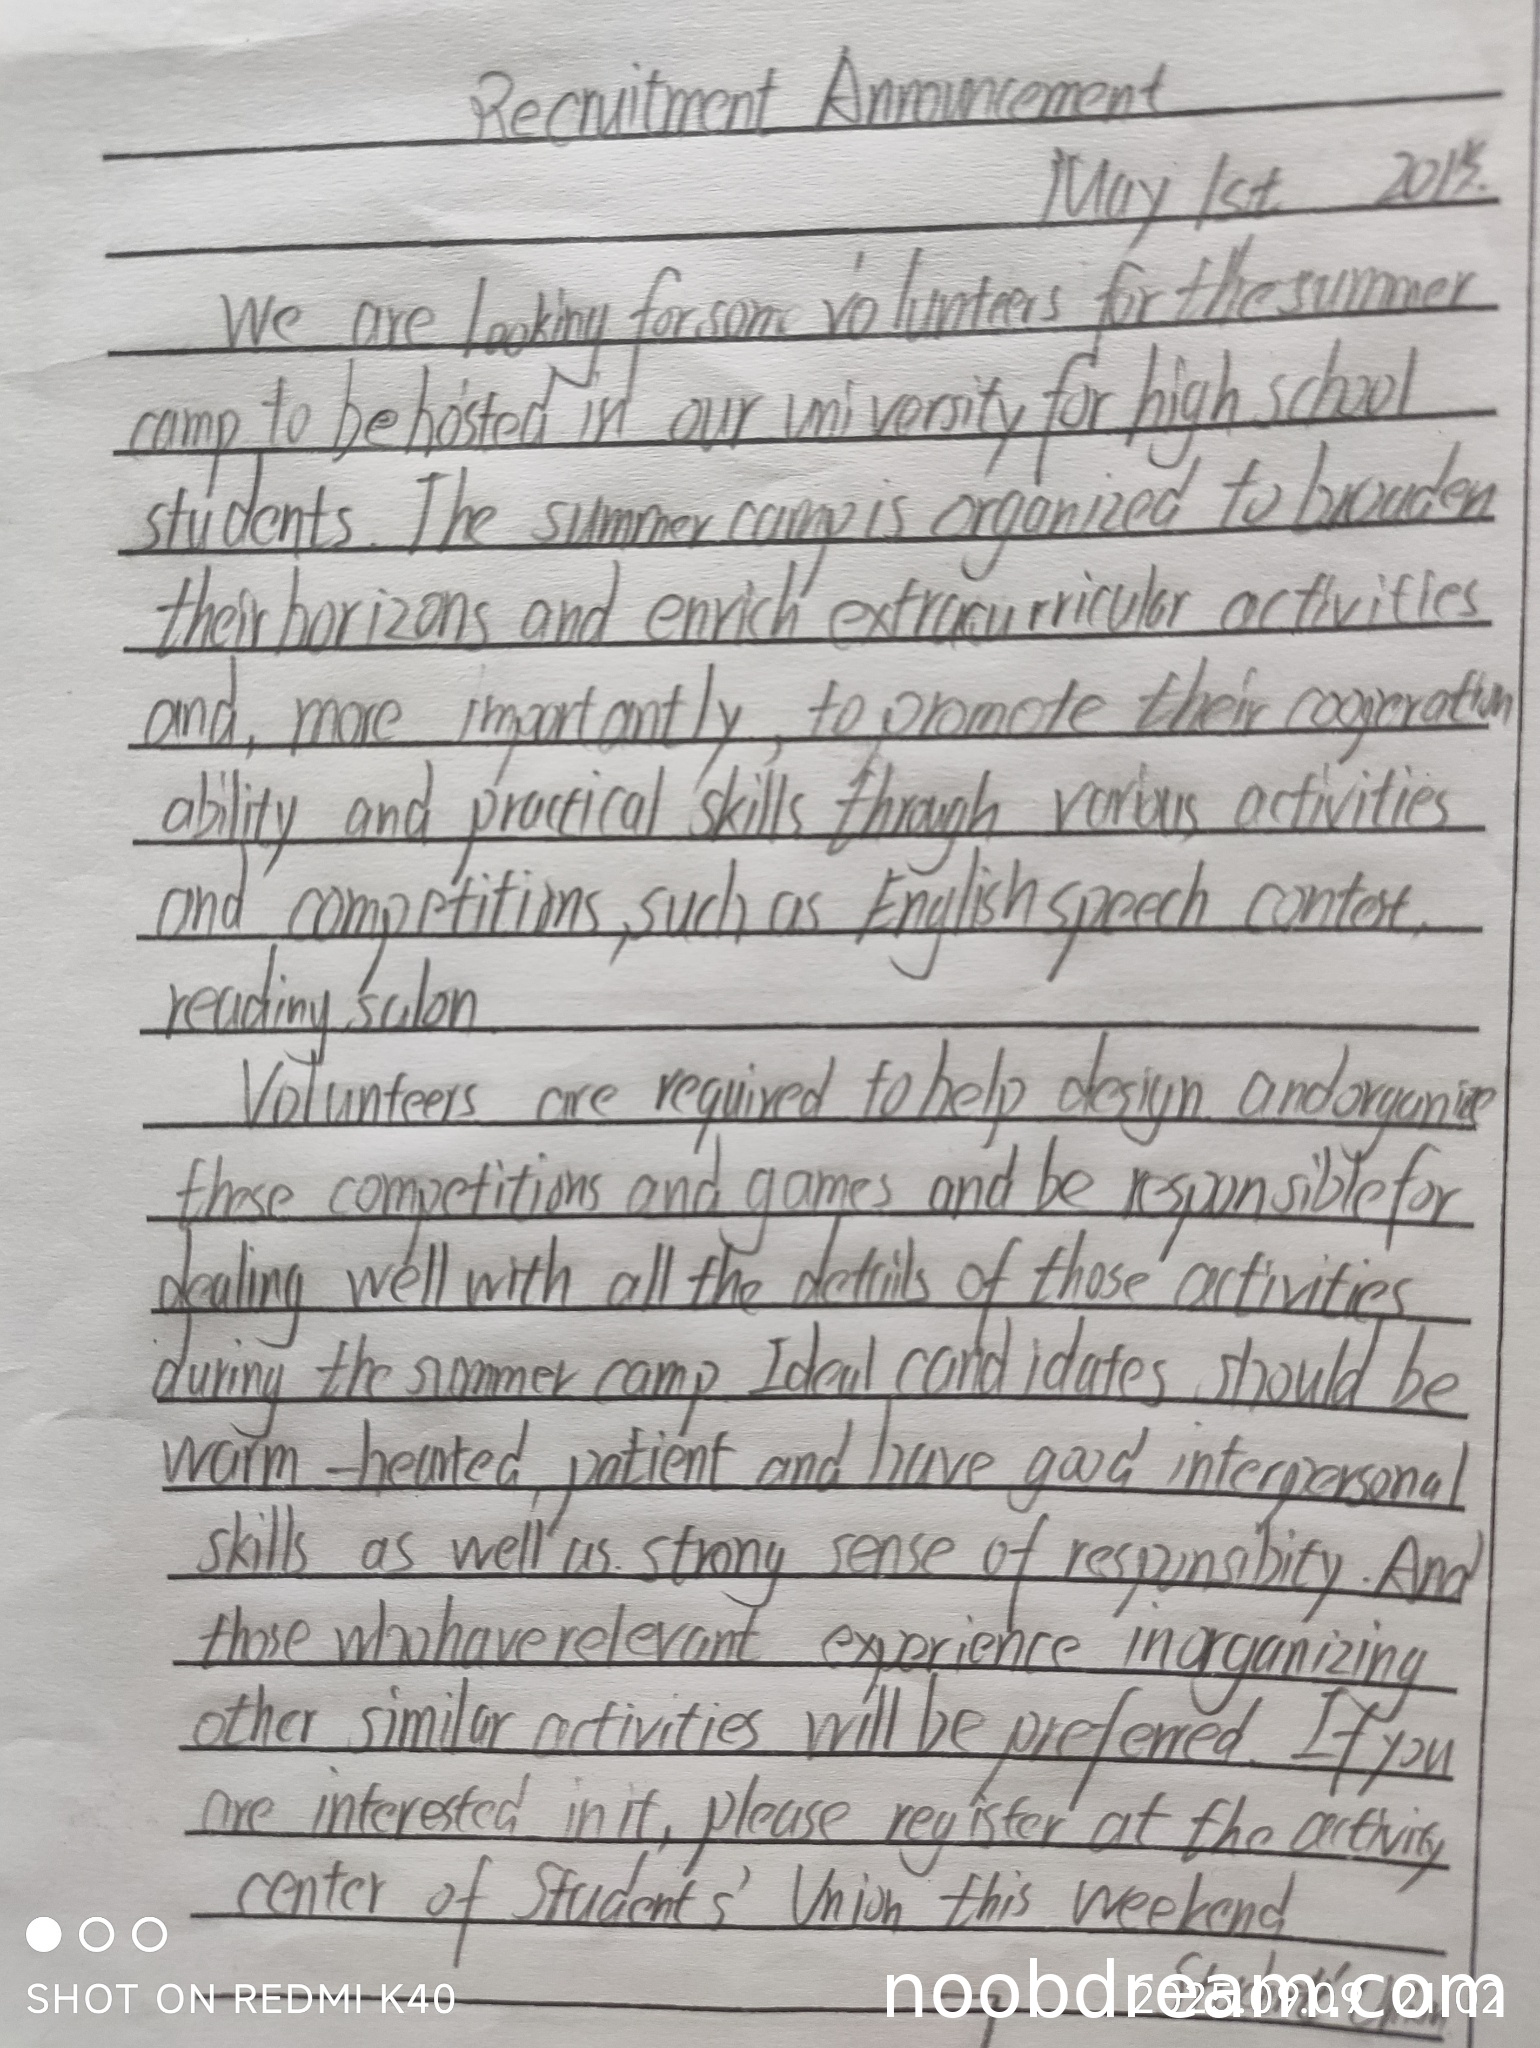 Recruitment Announcement
May 1st 2015.
We are looking for some volunteers for the summer
camp to be hosted in our university for high school
students. The summer camp is organized to broaden
their horizons and enrich extracurricular activities
and, more importantly, to promote their cooperation
ability and practical skills through various activities
and competitions, such as English speech contest,
reading salon
Volunteers are required to help design and organize
these competitions and games and be responsible for
dealing well with all the details of those activities
during the summer camp. Ideal candidates should be
warm-hearted, patient and have good interpersonal
skills as well as strong sense of responsibity. And
those who have relevant experience in organizing
other similar activities will be preferred. If you
are interested in it, please register at the activity
center of Students' Union this weekend
SHOT ON REDMI K40
noobdream.com
2025.09.09 21:02